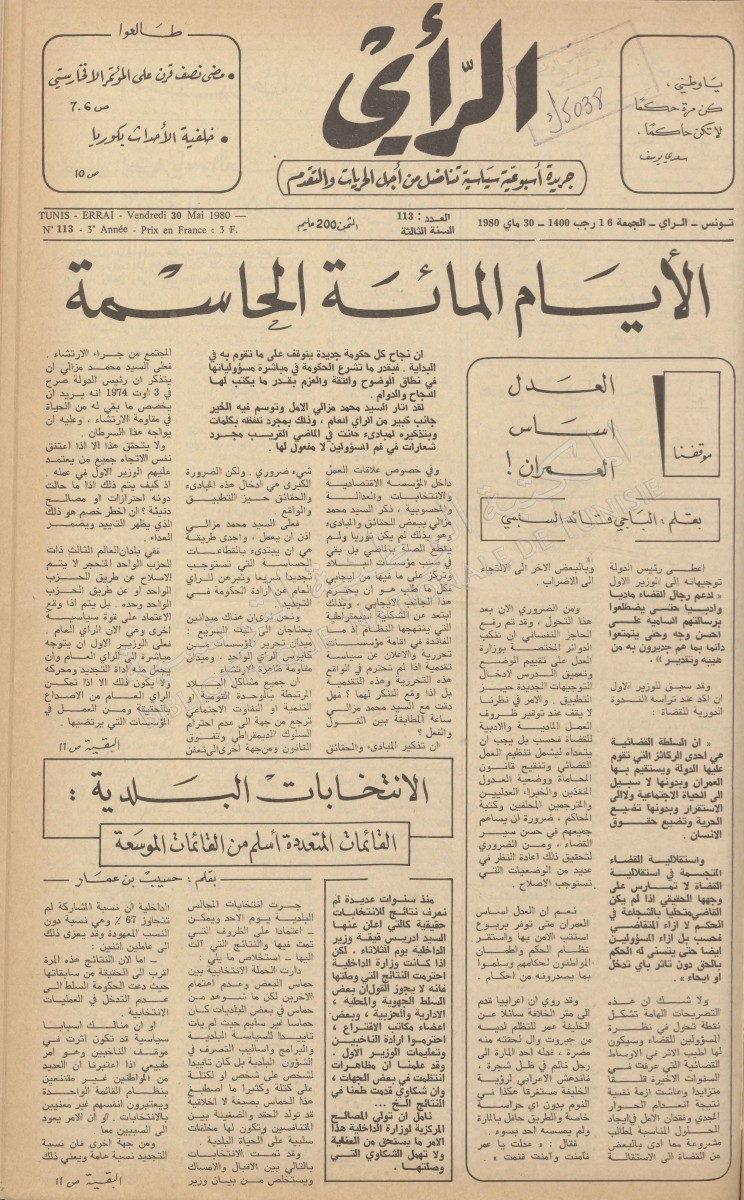 طالعوا
• مضى نصف قرن على المؤتمر الافخارستي
ص 7.6
• خلفية الأحداث بكوريا
ص 10
الرأي
جريدة أسبوعية سياسية تناضل من أجل الحريات والتقدم
يا وطني ،
كن مرة حكمًا
لا تكن حاكمًا .
سعدي يوسف
5038
تونس – الراي – الجمعة 16 رجب 1400 – 30 ماي 1980
العدد : 113
السنة الثالثة
الثمن 200 مليم
TUNIS - ERRAI - Vendredi 30 Mai 1980 —
N° 113 - 3e Année - Prix en France : 3 F.
الأيام المائة الحاسمة
موقفنا
العدل
اساس
العمران !
بقلم : الباجي قائد السبسي
اعطى رئيس الدولة
توجيهاته الى الوزير الاول
« لدعم رجال القضاء ماديا
وادبيا حتى يضطلعوا
برسالتهم الساميه على
احسن وجه وحتى يتمتعوا
دائما بما هم جديرون به من
هيبه وتقدير » .
وقد سبق للوزير الاول
ان اكد عند تراسه الندوة
الدورية للقضاة :
« ان السلطة القضائية
هي احدى الركائز التي تقوم
عليها الدولة ويستقيم بها
العمران وبدونها لا سبيل
الى الحياة الاجتماعية ولا الى
الاستقرار وبدونها تضيع
الحرية وتضيع حقوق
الانسان .
واستقلالية القضاء
المتجسمة في استقلالية
القضاة لا تمارس على
وجهها الحقيقي اذا لم يكن
القاضي متحليا بالشجاعة في
الحكم لا ازاء المتقاضي
فحسب بل ازاء المسؤولين
ايضا حتى يتسنى له الحكم
بالحق دون تاثر باي تدخل
أو ايحاء » .
ولا شك ان هذه
التصريحات الهامة تشكل
نقطة تحول في نظرة
المسؤولين للقضاء وسيكون
لها اطيب الاثر في الاوساط
القضائية التي عرفت في
السنوات الاخيرة قلقا
متزايدا وعاشت ازمة نفسية
نتيجة انعدام الحوار
الجدي وفقدان الامل في ايجاد
الحلول المناسبة لمطالب
مشروعة مما ادى بالبعض
من القضاة الى الاستقالة
وبالبعض الاخر الى الالتجاء
الى الاضراب .
ومن الضروري الان بعد
هذا التحول ، وقد تم رفع
الحاجز النفساني ان تنكب
الدوائر المختصة بوزارة
العدل على تقييم الوضع
وتعميق الدرس لادخال
التوجيهات الجديدة حيز
التطبيق . والامر في نظرنا
لا يقف عند توفير ظروف
العمل المادية والادبية
للقضاة فحسب بل يجب ان
يتعداه ليشمل تنظيم العمل
القضائي وتنقيح قانون
المحاماة ووضعية العدول
المنفذين والخبراء العدليين
والمترجمين المحلفين وكتبة
المحاكم ، ضرورة ان يساهم
جميعهم في حسن سير
القضاء ، ومن الضروري
لتحقيق ذلك اعادة النظر في
عديد من الوضعيات التي
تستوجب الاصلاح .
نعم ان العدل اساس
العمران متى توفر بربوع
استتب الامن بها واستقر
نظام الحكم واطمان
المواطنون لحكامهم وسلموا
بما يصدرونه من احكام .
وقد روي ان اعرابيا قدم
الى مقر الخلافة سائلا عن
الخليفة عمر للتظلم لديه
من جبروت وال لحقته منه
مضرة ، فدله احد المارة الى
رجل نائم في ظل شجرة ،
فاندهش الاعرابي لرؤية
الخليفة مستغرقا هكذا في
النوم بدون اي حراسة
خاصة والطريق حافل بالمارة
ولم يمسسه احد بسوء ،
فقال : « عدلت يا عمر
فأمنت وأمنت فنمت » .
ان نجاح كل حكومة جديدة يتوقف على ما تقوم به في
البداية . فبقدر ما تشرع الحكومة في مباشرة مسؤولياتها
في نطاق الوضوح والثقة والعزم بقدر ما يكتب لها
النجاح والدوام .
لقد اثار السيد محمد مزالي الامل وتوسم فيه الخير
جانب كبير من الراي العام ، وذلك بمجرد تلفظه بكلمات
وبتذكيره لمبادىء كانت في الماضي القريب مجرد
شعارات في فم المسؤولين لا مفعول لها .
وفي خصوص علاقات العمل
داخل المؤسسة الاقتصادية
والانتخابات والعدالة
والمحسوبية ، ذكر السيد محمد
مزالي ببعض الحقائق والمبادىء
وهو بذلك لم يكن ثوريا ولم
يقطع الصلة بالماضي بل بقي
في صلب مؤسسات البلاد
وتركز على ما فيها من ايجابي
فكل ما طلب هو ان يحترم
هذا الجانب الايجابي ، وبذلك
ابتعد عن الشكلية الديمقراطية
التي ينتهجها النظام اذ ما
الفائدة في اقامة مؤسسات
تحررية والاعلان عن سياسة
تقدمية اذا لم تحترم في الواقع
هذه التحررية وهذه التقدمية
بل اذا وقع التنكر لهما ؟ فهل
دقت مع السيد محمد مزالي
ساعة المطابقة بين القول
والفعل ؟
ان تذكير المبادىء والحقائق
شيء ضروري . ولكن الضرورة
الكبرى هي ادخال هذه المبادىء
والحقائق حيز التطبيق
والواقع
فعلى السيد محمد مزالي
اذن ان يعمل ، واجدى طريقة
هي ان يبتدىء بالقطاعات
الحساسة التي تستوجب
تجديدا سريعا وتبرهن للراي
العام عن ارادة الحكومة في
التجديد .
ونحن نرى ان هناك ميدانين
يحتاجان الى البت السريع :
ميدان تحرير المؤسسات من
كابوس الراي الواحد ، وميدان
مقاومة ظاهرة الارتشاء .
ان جميع مشاكل البلاد
المرتبطة بالوحدة القومية او
التنمية او التفاوت الاجتماعي
ترجع من جهة الى عدم احترام
السلوك الديمقراطي وتفوق
القانون ومن جهة اخرى الى تعفن
المجتمع من جراء الارتشاء .
فعلى السيد محمد مزالي ان
يتذكر ان رئيس الدولة صرح
في 3 اوت 1974 انه يريد ان
يخصص ما بقي له من الحياة
في مقاومة الارتشاء ، وعليه ان
يواجه هذا السرطان .
ولا يتحقق هذا الا اذا اعتنق
نفس الاتجاه جميع من يعتمد
عليهم الوزير الاول في عمله .
اذ كيف يتم ذلك اذا ما حالت
دونه احترازات او مصالح
دنيئة ؟ ان اخطر خصم هو ذلك
الذي يظهر التأييد ويضمر
العداء .
ففي بلدان العالم الثالث ذات
الحزب الواحد المتحجر لا يتم
الاصلاح عن طريق الحزب
الواحد او عن طريق الحزب
الواحد وحده . بل يتم اذا وقع
الاعتماد على قوة سياسية
اخرى وهي الان الراي العام .
فعلى الوزير الاول ان يتوجه
مباشرة الى الراي العام وان
يجعل منه اداة التجديد ومحركه
ولا يكون ذلك الا اذا تمكن
الراي العام من الاصداع
بالحقيقة ومن العمل في
المؤسسات التي يرتضيها .
البقية ص 11
الانتخابات البلدية :
القائمات المتعددة أسلم من القائمات الموسعة
بقلم : حسيب بن عمار
منذ سنوات عديدة لم
نعرف نتائج للانتخابات
حقيقية كالتي اعلن عنها
السيد ادريس قيقة وزير
الداخلية يوم الثلاثاء . لكن
اذا كانت وزارة الداخلية
احترمت النتائج التي وصلتها
فانه لا يجوز القول ان بعض
السلط الجهوية والمحلية ،
الادارية والحزبية ، وبعض
اعضاء مكاتب الاقتراع ،
احترموا ارادة الناخبين
وتعليمات الوزير الاول .
وقد علمنا ان مظاهرات
انتظمت في بعض الجهات ،
وان شكاوي قدمت طعنا في
النتائج الخ ...
نأمل ان تولي المصالح
المركزية لوزارة الداخلية هذا
الامر ما يستحق من العناية
ولا تهمل الشكاوي التي
وصلتها .
جرت انتخابات المجالس
البلدية يوم الاحد ويمكن
– اعتمادا على الظروف التي
تمت فيها والنتائج التي الت
اليها – استخلاص ما يلي :
دارت الحملة الانتخابية بين
حماس البعض وعدم اهتمام
الاخرين لكن ما شوهد من
حماس في بعض البلديات كان
حماسا غير سليم حيث لم يات
تأييدا للسياسة البلدية
والبرامج واساليب التصرف في
الشؤون البلدية بل كان تأييدا
لشخص على شخص او لكتلة
على كتلة وكثيرا ما اصطبغ
هذا الحماس بصبغة لا اخلاقية
قد تولد الحقد والضغينة بين
المتنافسين وتكون لها مخلفات
سلبية على الحياة البلدية .
وقد تمت الانتخابات
بالتالي بين الاقبال والامساك
ويستخلص من بيان وزير
الداخلية ان نسبة المشاركة لم
تتجاوز 67 ٪ وهي نسبة دون
النسب المعهودة وقد يعزى ذلك
الى عاملين اثنين :
– اما لان النتائج هذه المرة
اقرب الى الحقيقة من سابقاتها
حيث دعت الحكومة السلط الى
عدم التدخل في العمليات
الانتخابية
او ان هنالك اسبابا
سياسية قد تكون اثرت في
موقف الناخبين وهو امر
طبيعي اذا اعتبرنا ان العديد
من المواطنين غير مقتنعين
بنظام القائمة الواحدة
ويعتبرون انفسهم غير معنيين
بالانتخابات . او ان الامر يعود
الى السببين معا .
ومن جهة اخرى فان نسبة
التجديد نسبة عامة ويعني ذلك
البقية ص 11